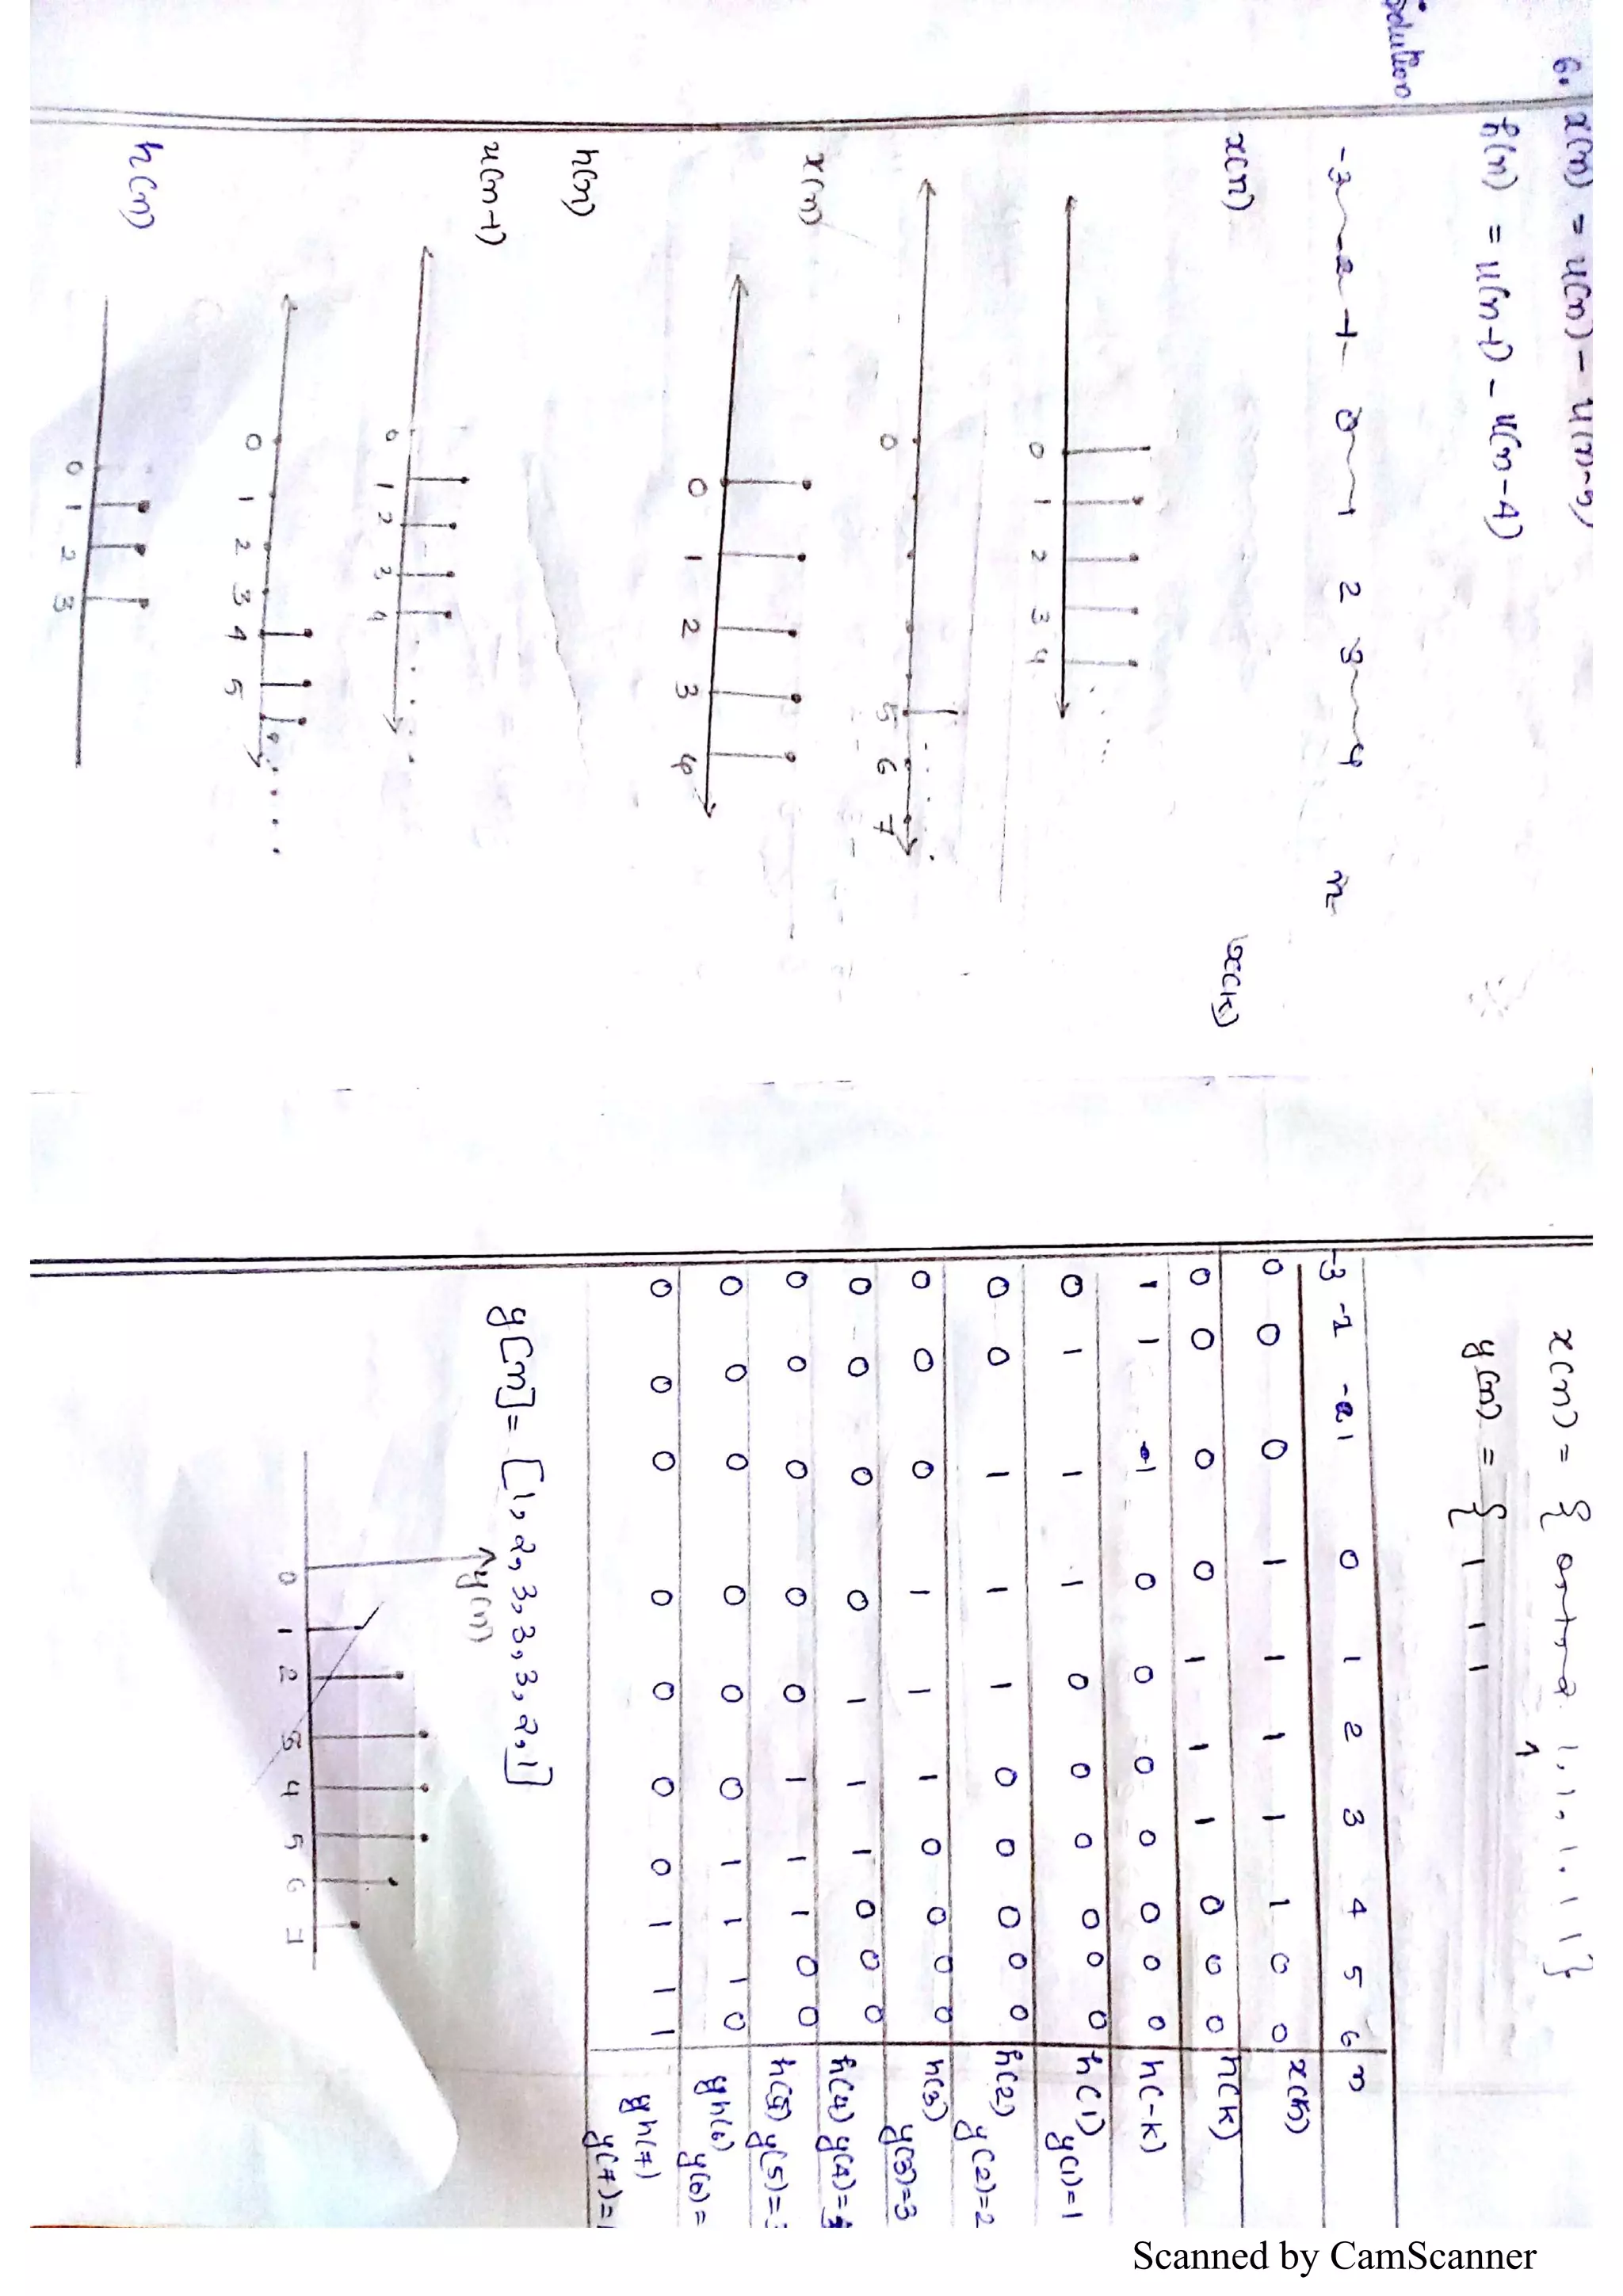 6. x(n) = u(n) - u(n-5)
h(n) = u(n-1) - u(n-4)
Solution
-3 -2 -1 0 1 2 3 4 n
x(n) x(k)
0 1 2 3 4
0 5 6 7
x(n)
0 1 2 3 4
h(n)
u(n-1)
0 1 2 3 4
0 1 2 3 4 5
h(n)
0 1 2 3
x(n) = { 1, 1, 1, 1 1}
y(n) = { 1 1 1
-3 -2 -1 0 1 2 3 4 5 6 n
0 0 0 1 1 1 1 1 0 0 x(k)
0 0 0 0 1 1 1 0 0 0 h(k)
1 1 1 0 0 0 0 0 0 0 h(-k)
0 1 1 1 0 0 0 0 0 0 h(1) y(1)=1
0 0 1 1 1 0 0 0 0 0 h(2) y(2)=2
0 0 0 1 1 1 0 0 0 0 h(3) y(3)=3
0 0 0 0 1 1 1 0 0 0 h(4) y(4)=3
0 0 0 0 0 1 1 1 0 0 h(5) y(5)=3
0 0 0 0 0 0 1 1 1 0 h(6) y(6)=
0 0 0 0 0 0 0 1 1 1 h(7) y(7)=1
y[n] = [1, 2, 3, 3, 3, 2, 1]
y(n)
0 1 2 3 4 5 6 7
Scanned by CamScanner